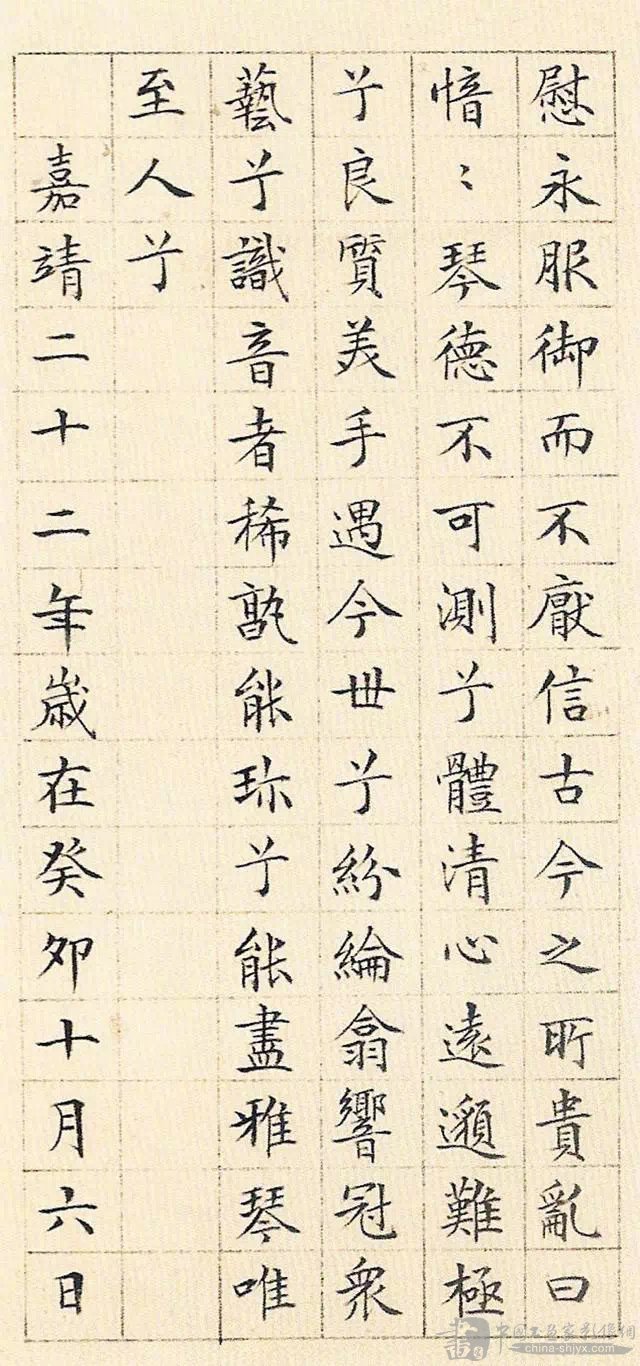 慰永服御而不厭信古今之所貴亂曰
愔〻琴德不可測兮體清心遠邈難極
兮良質美手遇今世兮紛綸翕響冠衆
藝兮識音者稀孰能珎兮能盡雅琴唯
至人兮
嘉靖二十二年歲在癸卯十月六日
china-shjyx.com